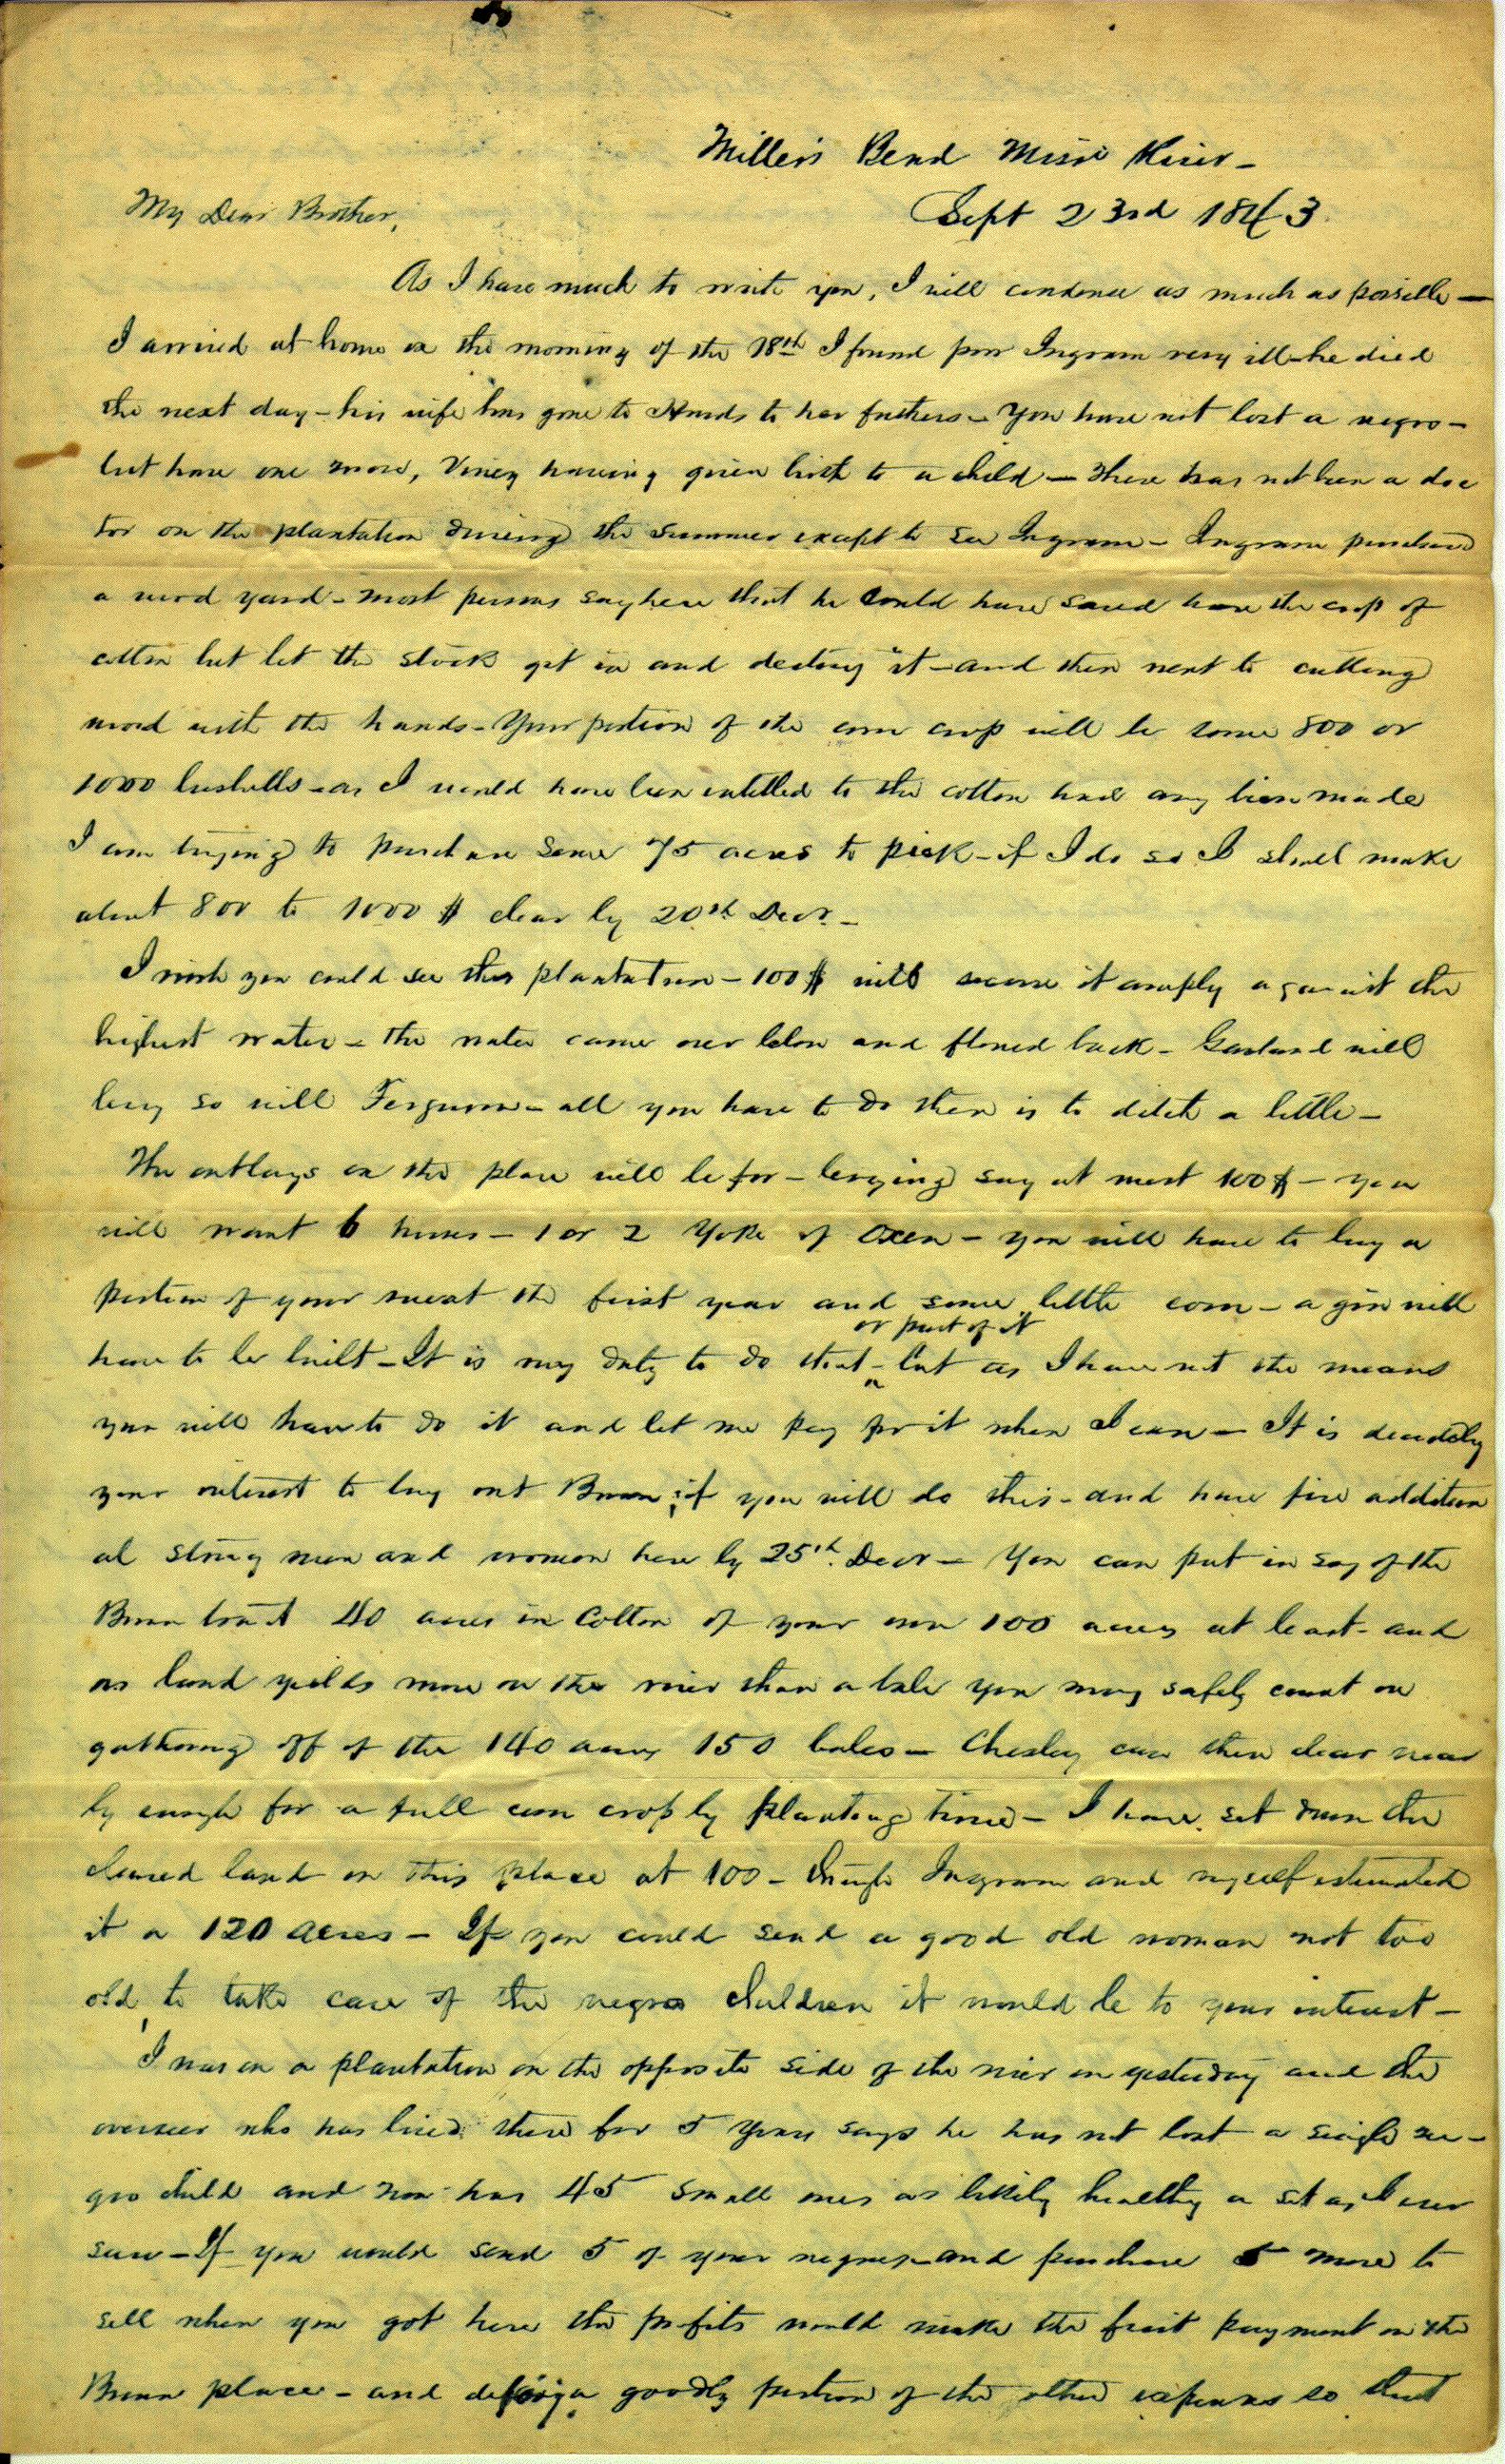 Miller's Bend Missi River -
Sept 23rd 1843.
My Dear Brother,
As I have much to write you, I will condence as much as possible -
I arrived at home on the morning of the 18th I found poor Ingram very ill - he died
the next day - his wife has gone to Hinds to her fathers - You have not lost a negro -
but have one more, Viney having given birth to a child - There has not been a doc
tor on the plantation during the summer except to see Ingram - Ingram purchased
a wood yard - most persons say here that he could have saved the crop of
cotton but let the stock get in and destroy it - and then went to cutting
wood with the hands - Your portion of the corn crop will be some 800 or
1000 bushells - as I would have been entitled to the cotton had any been made
I am trying to purchase some 75 acres to pick - if I do so I shall make
about 800 to 1000 $ clear by 20th Decr -
I wish you could see this plantation - 100$ will secure it amply against the
highest water - the water came over below and flowed back - Garland will
levy so will Ferguson - all you have to do then is to ditch a little -
The outlays on the place will be for - levying say at most 100$ - you
will want 6 horses - 1 or 2 Yoke of Oxen - you will have to buy a
portion of your meat the first year and some little corn - a gin will
or part of it
have to be built - It is my duty to do that - but as I have not the means
you will have to do it and let me pay for it when I can - It is decidedly
your interest to buy out if you will do this - and have five addition
al strong men and women here by 25th Decr - You can put in say of the
tract 40 acres in Cotton of your own 100 acres at least - and
as land yields more on the river than a bale you may safely count on
gathering off of the 140 acres 150 bales - Chesley can then clear near
ly enough for a full corn crop by planting time - I have set down the
cleared land on this place at 100 - though Ingram and myself estimated
it a 120 acres - If you could send a good old woman not too
old, to take care of the negro children it would be to your interest -
I was on a plantation on the opposite side of the river on yesterday and the
overseer who has lived there for 5 years says he has not lost a single ne-
gro child and now has 45 small ones as likely healthy a set as I ever
saw - If you would send 5 of your negroes and purchase 5 more to
sell when you got here the profits would make the first payment on the
place - and a goodly portion of the other expenses so that